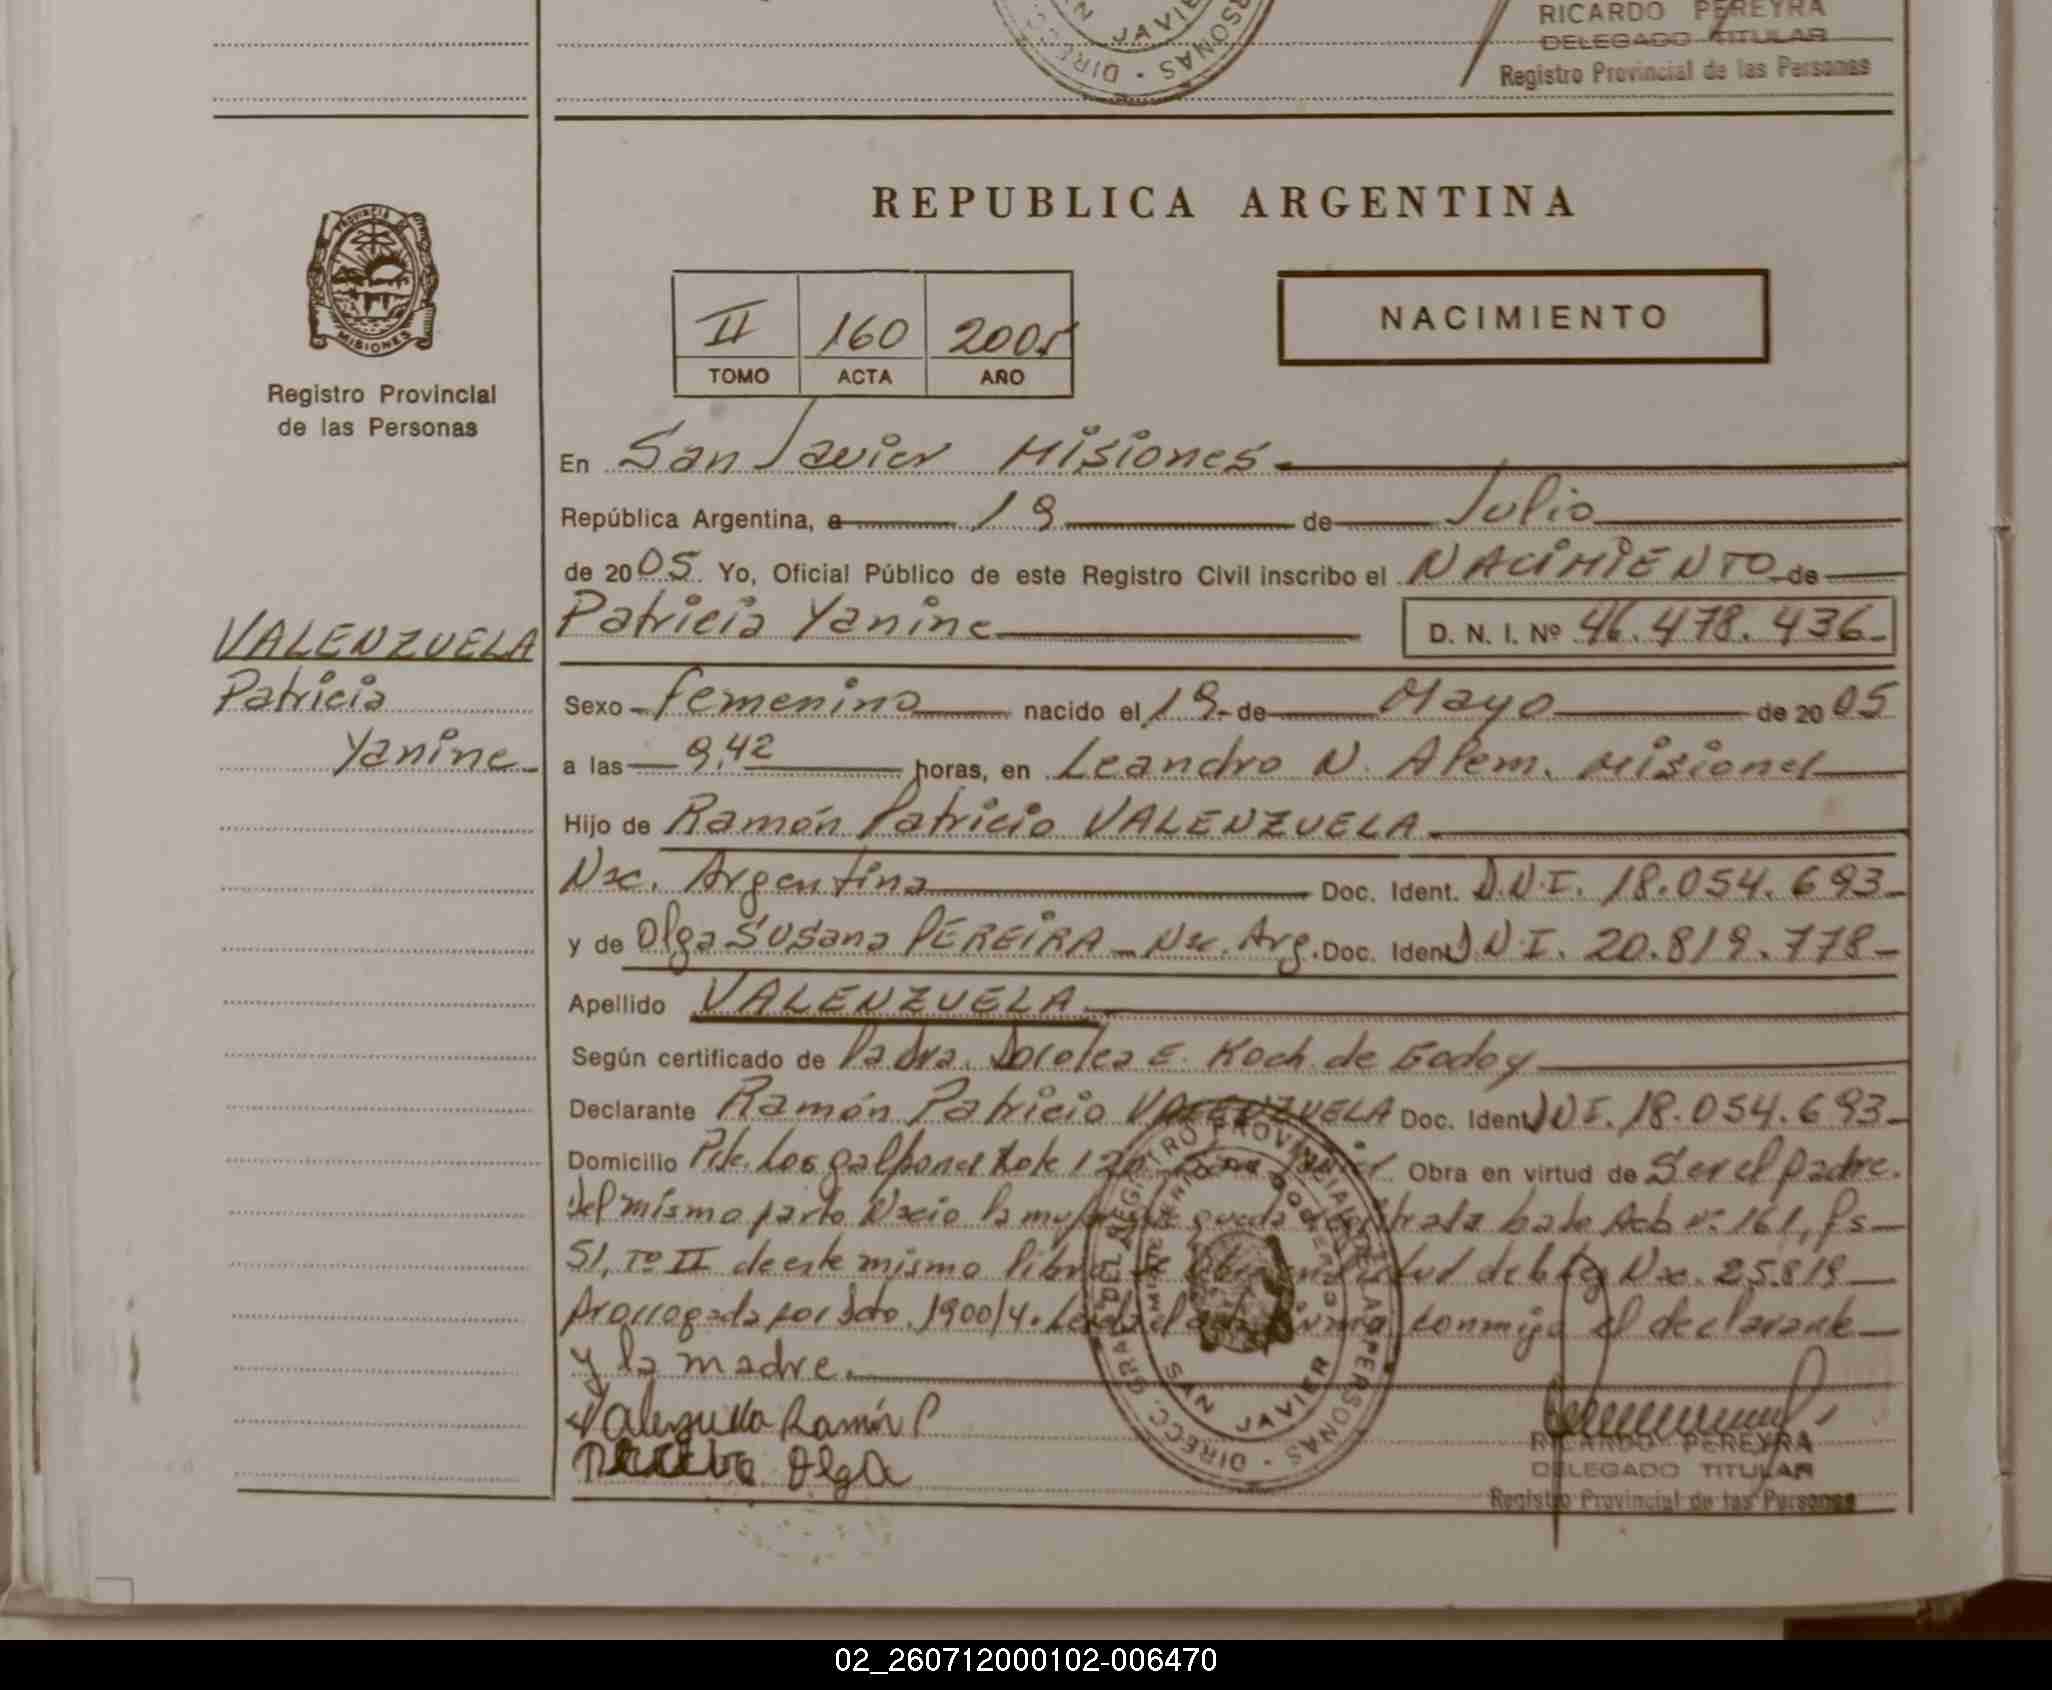 RICARDO PEREYRA
DELEGADO TITULAR
Registro Provincial de las Personas
REPUBLICA ARGENTINA
PROVINCIA
MISIONES
Registro Provincial
de las Personas
II 160 2005
TOMO ACTA AÑO
NACIMIENTO
En San Javier Misiones.
República Argentina, a 19 de Julio
de 2005. Yo, Oficial Público de este Registro Civil inscribo el NACIMIENTO de
VALENZUELA
Patricia
Yanine
Patricia Yanine
D. N. I. Nº 46.478.436
Sexo femenino nacido el 19 de Mayo de 2005
a las 9,42 horas, en Leandro N. Alem. Misiones
Hijo de Ramón Patricio VALENZUELA.
Nac. Argentina Doc. Ident. D.N.I. 18.054.693
y de Olga Susana PEREIRA Nac. Arg. Doc. Ident. D.N.I. 20.819.778
Apellido VALENZUELA
Según certificado de la Dra. Dorotea E. Koch de Godoy
Declarante Ramón Patricio VALENZUELA Doc. Ident. DNI. 18.054.693
Domicilio Pje. Los galpones Lote 120 San Javier. Obra en virtud de Ser el padre.
Del mismo parto Nacio la que queda bajo Acta nº 161, fs
51, Tº II de este mismo libro Se en virtud de Ley Nac. 25.819
Prorrogada por Dcto. 1900/4. Leida el acta firma conmigo el declarante
y la madre.
Valenzuela Ramón P
Olga
DIRECC. GRAL. DEL REGISTRO PROVINCIAL DE LAS PERSONAS
MINISTERIO DE GOBIERNO
SAN JAVIER
RICARDO PEREYRA
DELEGADO TITULAR
Registro Provincial de las Personas
02_260712000102-006470